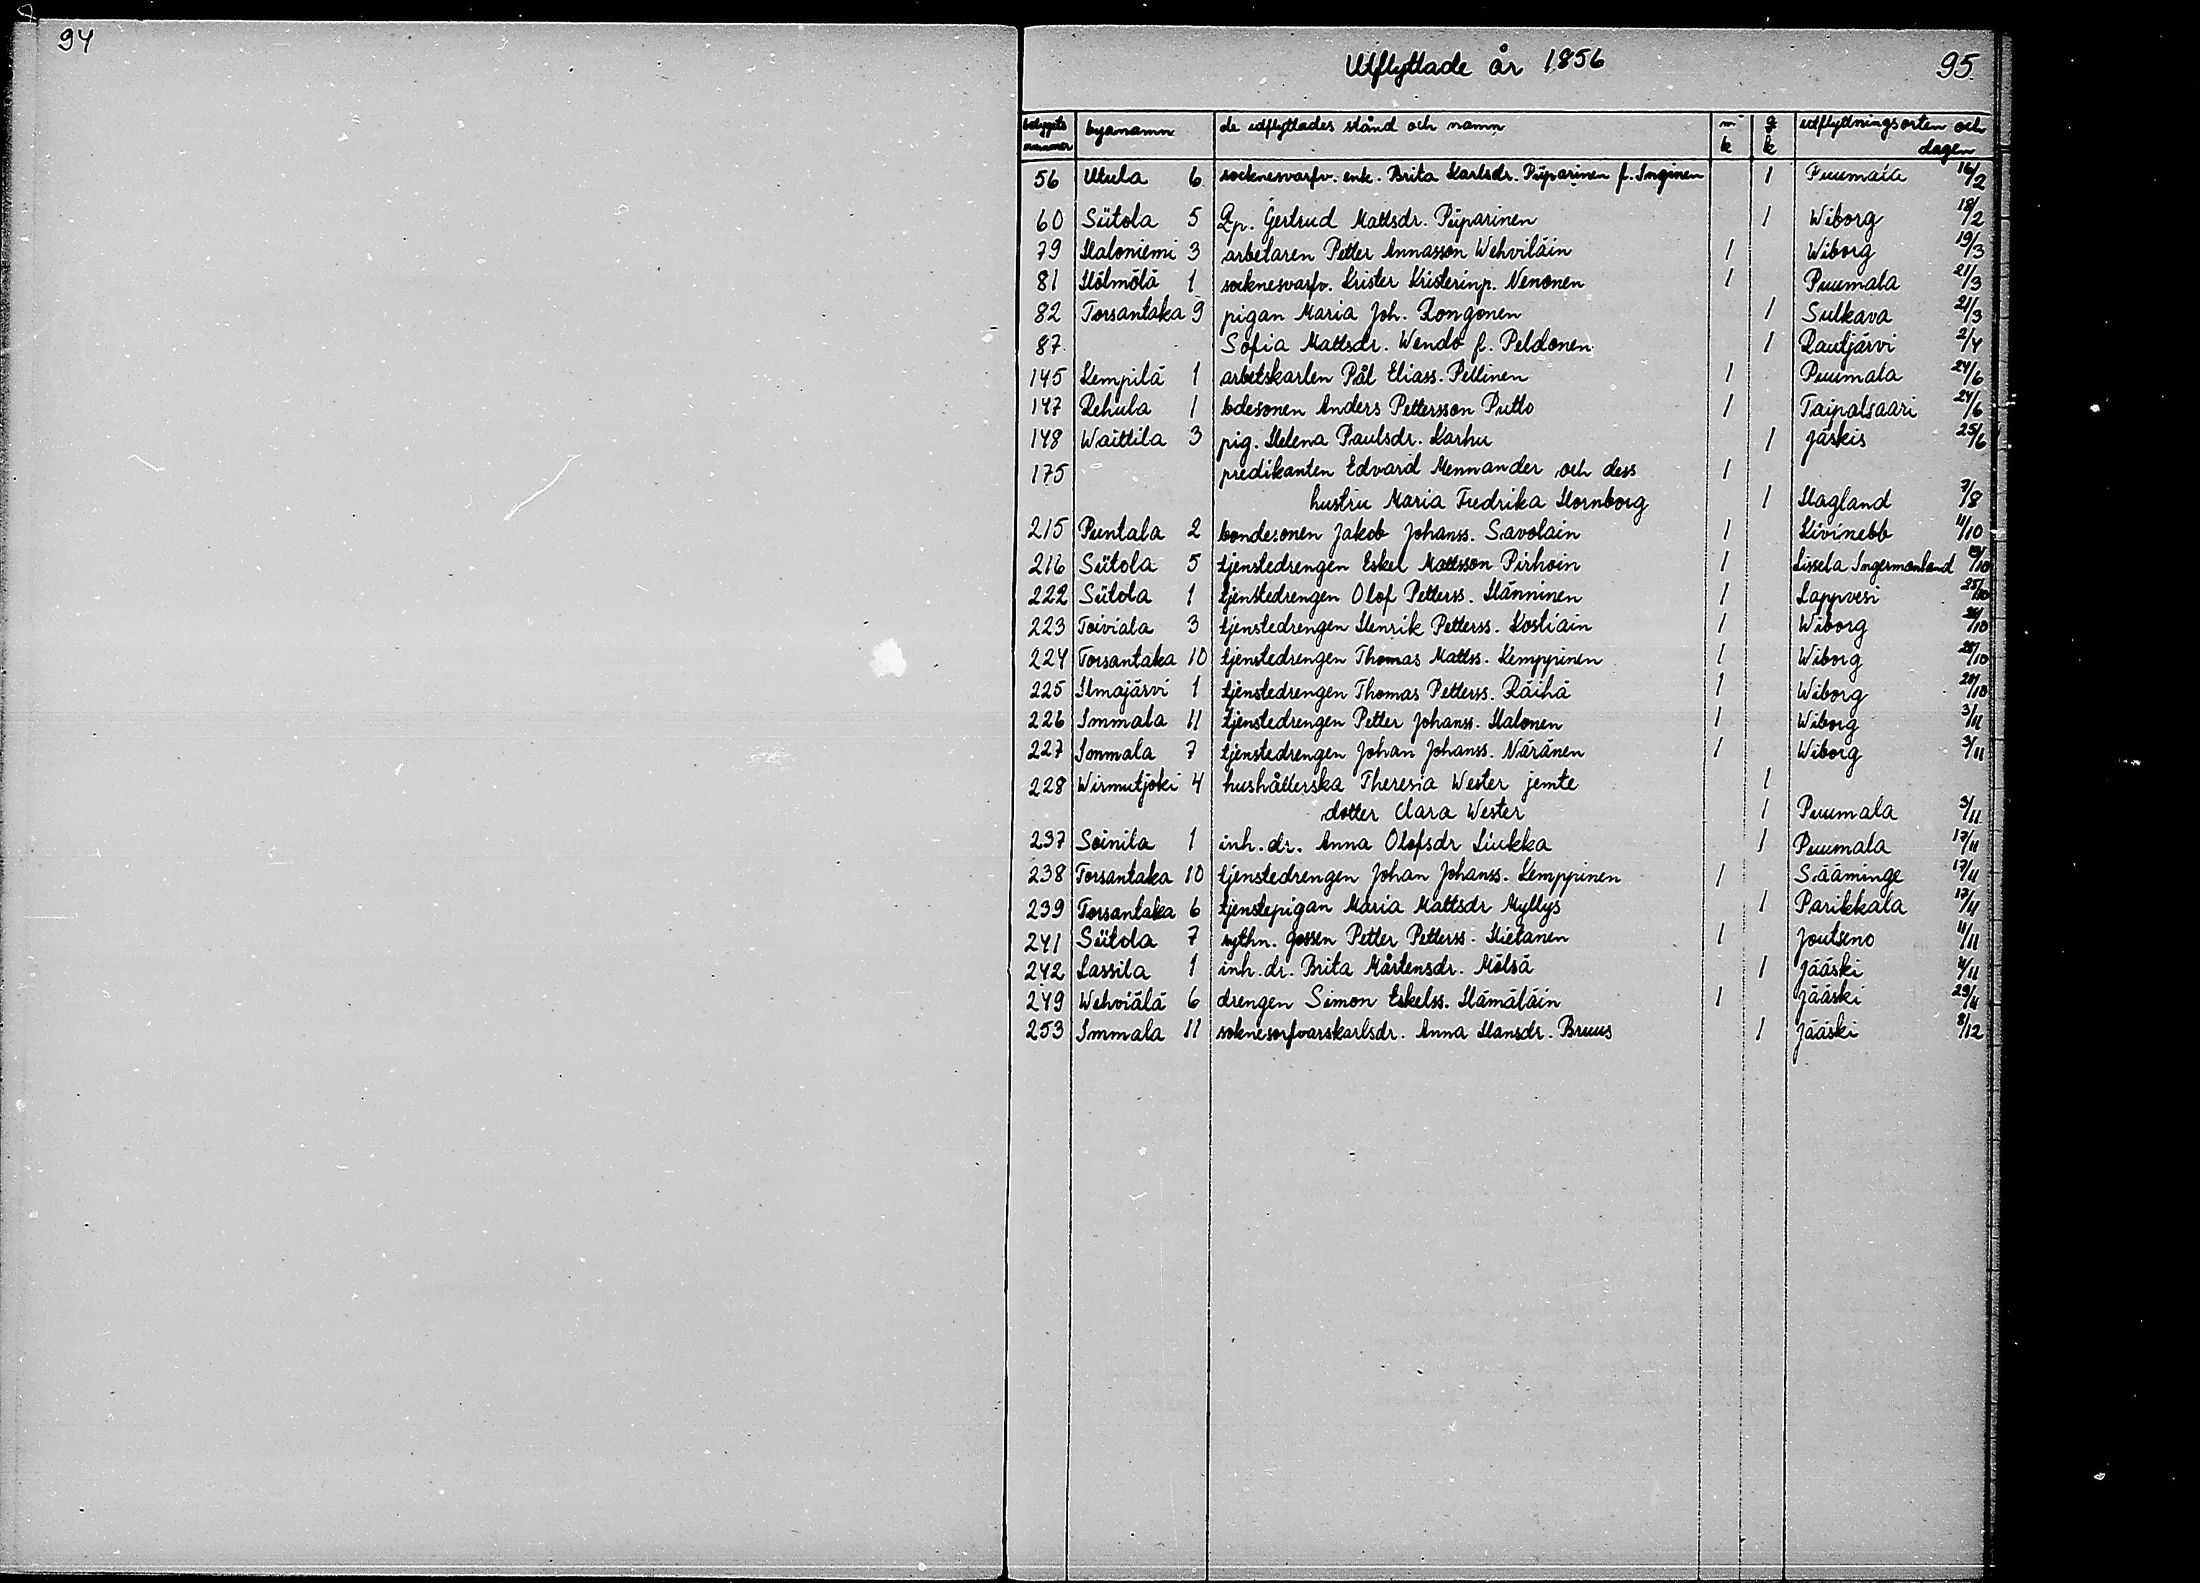 94
Utflyttade år 1856 95
betygets nummer byanamn de utflyttades stånd och namn m k q k utflyttningsorten och dagen
56 Utula 6 socknesvarfv. enk. Brita Karlsdr. Piiparinen f. Inginen 1 Puumala 16/2
60 Siitola 5 Qp. Gertrud Mattsdr. Piiparinen 1 Wiborg 18/2
79 Haloniemi 3 arbetaren Petter Annasson Wehviläin 1 Wiborg 19/3
81 Hölmölä 1 socknesvarfv. Krister Kristerinp. Nenonen 1 Puumala 21/3
82 Torsantaka 9 pigan Maria Joh. Rongonen 1 Sulkava 21/3
87 Sofia Mattsdr. Wendo f. Peldonen 1 Rautjärvi 2/4
145 Kempilä 1 arbetskarlen Pål Eliass. Pellinen 1 Puumala 24/6
147 Rehula 1 bdesonen Anders Pettersson Putto 1 Taipalsaari 24/6
148 Waittila 3 pig. Helena Paulsdr. Karhu 1 Jäskis 25/6
175 predikanten Edvard Mennander och dess 1
hustru Maria Fredrika Hornborg 1 Hogland 7/8
215 Puntala 2 bondesonen Jakob Johanss. Savolain 1 Kivinebb 11/10
216 Siitola 5 tjenstedrengen Eskel Mattsson Pirhoin 1 Lissela Ingermanland 19/10
222 Siitola 1 tjenstedrengen Olof Petterss. Hänninen 1 Lappvesi 25/10
223 Toiviala 3 tjenstedrengen Henrik Petterss. Kostiain 1 Wiborg /10
224 Torsantaka 10 tjenstedrengen Thomas Mattss. Kemppinen 1 Wiborg /10
225 Ilmajärvi 1 tjenstedrengen Thomas Petterss. Räihä 1 Wiborg /10
226 Immala 11 tjenstedrengen Petter Johanss. Halonen 1 Wiborg 3/11
227 Immala 7 tjenstedrengen Johan Johanss. Näränen 1 Wiborg 3/11
228 Wirmutjoki 4 hushållerska Theresia Wester jemte 1
dotter Clara Wester 1 Puumala 3/11
237 Soinila 1 inh. dr. Anna Olofsdr Liukka 1 Puumala 17/11
238 Torsantaka 10 tjenstedrengen Johan Johanss. Kemppinen 1 Sääminge 17/11
239 Torsantaka 6 tjenstepigan Maria Mattsdr Myllys 1 Parikkala 17/11
241 Siitola 7 sythn. gossen Petter Petterss. Hietanen 1 Joutseno 11/11
242 Lassila 1 inh. dr. Brita Mårtensdr. Mölsä 1 Jääski 4/11
249 Wehviälä 6 drengen Simon Eskelss. Hämäläin 1 Jääski 29/11
253 Immala 11 soknesorfvarskarlsdr. Anna Hansdr. Bruus 1 Jääski 8/12